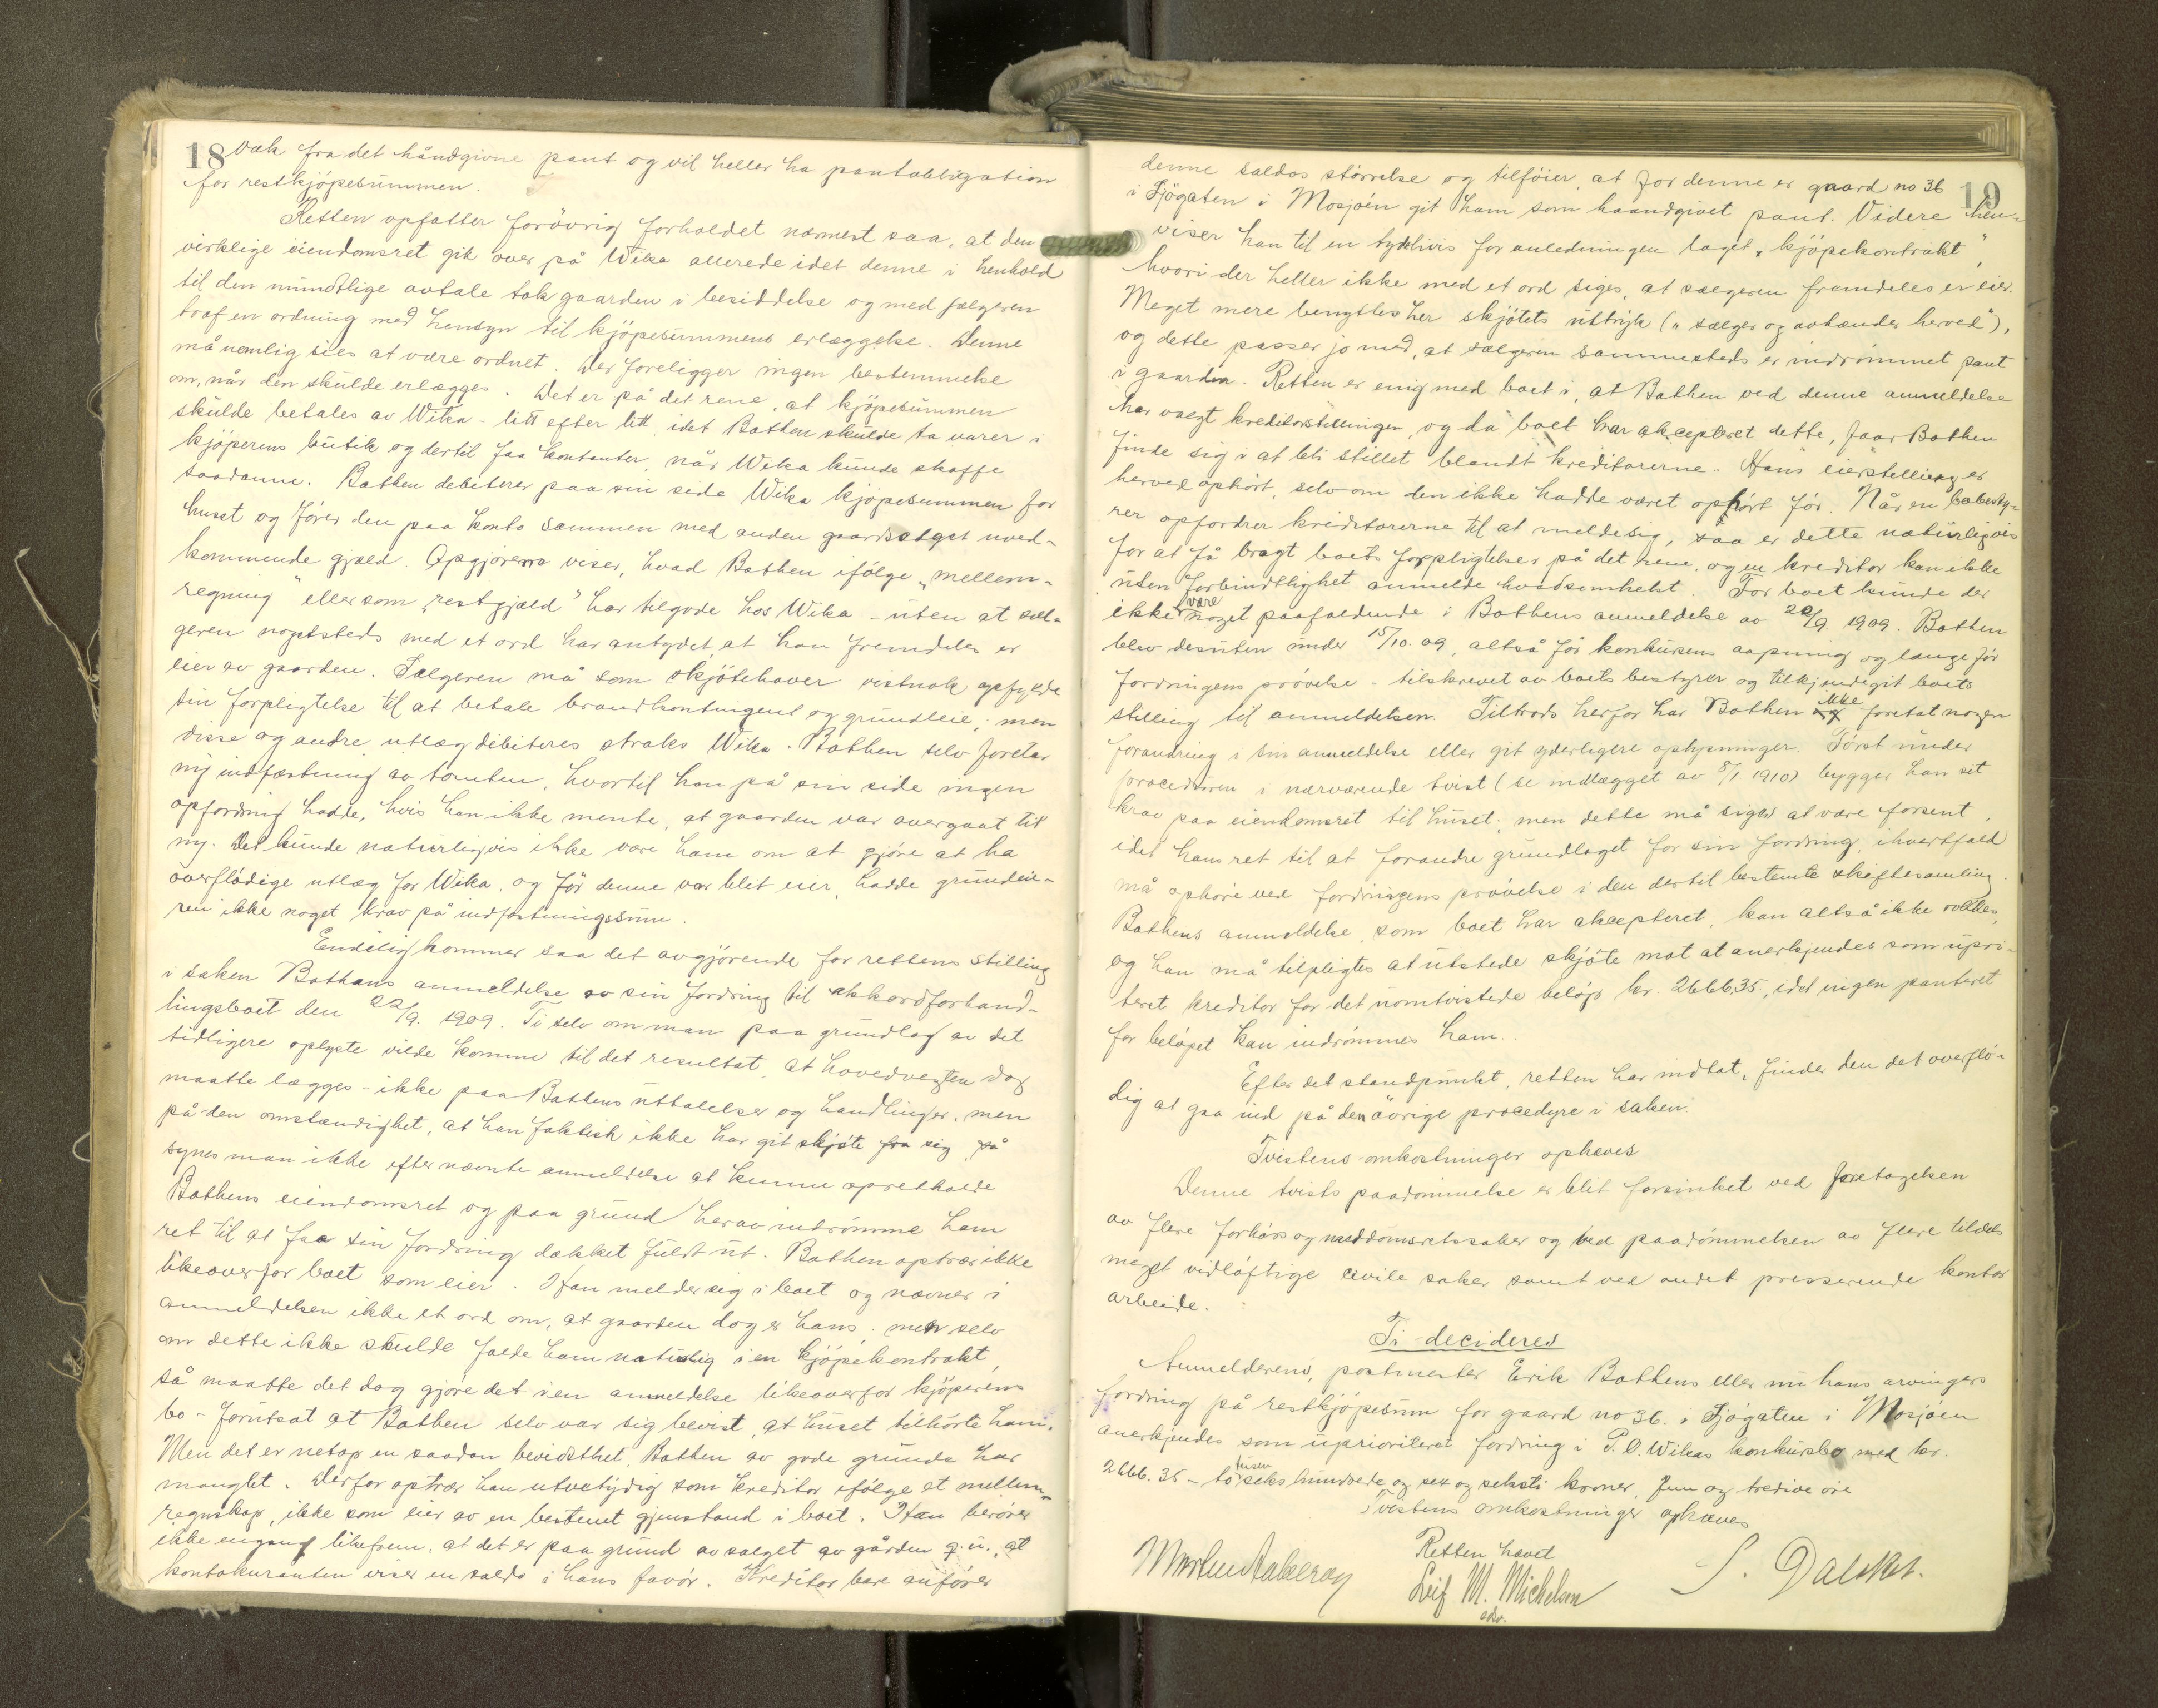 18
væk fra det håndgivne pant og vil heller ha pantobligation
for restkjøpesummen.
Retten opfatter forövrig forholdet nærmest saa, at den
virkelige eiendomsret gik over på Wika allerede idet denne i henhold
til den mundtlige avtale tok gaarden i besiddelse og med sælgeren
traf en ordning med hensyn til kjöpesummens erlæggelse. Denne
må nemlig sies at være ordnet. Der foreligger ingen bestemmelse
om, når den skulde erlægges. Det er på det rene, at kjöpesummen
skulde betales av Wika - litt efter litt, idet Bathen skulde ta varer i
kjöperens butik og dertil faa kontanter, når Wika kunde skaffe
saadanne. Bathen debiterer paa sin side Wika kjöpesummen for
huset og förer den paa konto sammen med anden gaardsalget uved-
kommende gjæld. Opgjörerne viser, hvad Bathen ifölge „mellem-
regning" eller som „restgjæld" har tilgode hos Wika - uten at sæl-
geren nogetsteds med et ord har antydet, at han fremdeles er
eier av gaarden. Sælgeren må som skjötehaver vistnok opfylde
sin forpligtelse til at betale brandkontingent og grundleie; men
disse og andre utlæg debiteres straks Wika. Bathen selv foretar
ny indfæstning av tomten, hvortil han på sin side ingen
opfordring hadde, hvis han ikke mente, at gaarden var overgaat til
ny. Det kunde naturligvis ikke være ham om at gjöre at ha
överflödige utlæg for Wika, og för denne var blit eier, hadde grundeie-
ren ikke noget krav på indfæstningssum.
Endelig kommer saa det avgjörende for rettens stilling
i saken Bathens anmeldelse av sin fordring til akkordforhand-
lingsboet den 22/9. 1909. Ti selv om man paa grundlag av det
tidligere oplyste vilde komme til det resultat, at hovedvegten dog
maatte lægges - ikke paa Bathens uttalelser og handlinger, men
på den omstændighet, at han faktisk ikke har git skjöte fra sig, så
synes man ikke efter nævnte anmeldelse at kunne opretholde
Bathens eiendomsret og paa grund herav indrömme ham
ret til at faa sin fordring dækket fuldt ut. Bathen optrær ikke
likeoverfor boet som eier. Han melder sig i boet og nævner i
anmeldelsen ikke et ord om, at gaarden dog er hans; men selv
om dette ikke skulde falde ham naturlig i en kjöpekontrakt,
så maatte det dog gjöre det i en anmeldelse likeoverfor kjöperens
bo - forutsat at Bathen selv var sig bevist, at huset tilhörte ham.
Men det er netop en saadan bevidsthet, Bathen av gode grunde har
manglet. Derfor optrær han utvetydig som kreditor ifölge et mellem-
regnskap, ikke som eier av en bestemt gjenstand i boet. Han berörer
ikke engang likefrem, at det er paa grund av salget av gården q. u., at
kontokuranten viser en saldo i hans favör. Kreditor bare anförer
19
denne saldos störrelse og tilföier, at for denne er gaard no 36
i Sjögaten i Mosjöen git ham som haandgivet pant. Videre hen-
viser han til en tydelivis for anledningen laget „kjöpekontrakt",
hvori der heller ikke med et ord siges, at sælgeren fremdeles er eier.
Meget mere benyttes her skjötets uttryk („sælger og avhænder herved"),
og dette passer jo med, at sælgeren sammesteds er indrömmet pant
i gaarden. Retten er enig med boet i, at Bathen ved denne anmeldelse
har valgt kreditorstillingen, og da boet har akcepteret dette, faar Bathen
finde sig i at bli stillet blandt kreditorerne. Hans eierstilling er
herved ophört, selv om den ikke hadde været ophört för. Når en bobesty-
rer opfordrer kreditorerne til at melde sig, så er dette naturligvis
for at få bragt boets forpligtelser på det rene, og en kreditor kan ikke
uten forbindtlighet anmelde hvadsomhelst. For boet kunde der
ikke være noget paafaldende i Bathens anmeldelse av 22/9. 1909. Bathen
blev desuten under 15/10. 09, altså för konkursens aapning og længe för
fordringens prövelse - tilskrevet av boets bestyrer og tilkjendegit boets
stilling til anmeldelsen. Tiltrods herfor har Bathen ikke foretat nogen
forandring i sin anmeldelse eller git yderligere oplysninger. Först under
proceduren i nærværende tvist (se indlægget av 8/1 1910) bygger han sit
krav paa eiendomsret til huset; men dette må siges at være forsent,
idet hans ret til at forandre grundlaget for sin fordring, ihvertfald
må ophöre ved fordringens prövelse i den dertil bestemte skiftesamling.
Bathens anmeldelse, som boet har akcepteret, kan altså ikke rokkes,
og han må tilpligtes at utstede skjöte mot at anerkjendes som upri-
teret kreditor for det uomtvistede belöp kr. 2666,35., idet ingen panteret
for belöpet kan indrömmes ham.
Efter det standpunkt, retten har indtat, finder den det overflö-
dig at gaa ind på den övrige procedyre i saken.
Tvistens omkostninger ophæves
Denne tvists paadömmelse er blit forsinket ved foretagelsen
av flere forhörs og meddomsretssaker og ved paadömmelsen av flere tildels
meget vidlöftige civile saker samt ved andet presserende kontor
arbeide.
Ti decideres
Anmelderens, postmester Erik Bathens eller nu hans arvingers
fordring på restkjöpesum for gaard no 36. i Sjögaten i Mosjöen
anerkjendes som uprioriteret fordring i P. O. Wikas konkursbo med kr.
2666. 35 - to tusen seks hundrede og sex og seksti kroner, fem og tredive öre
Tvistens omkostninger ophæves
Retten hævet
Leif M. Michelsen
edv.